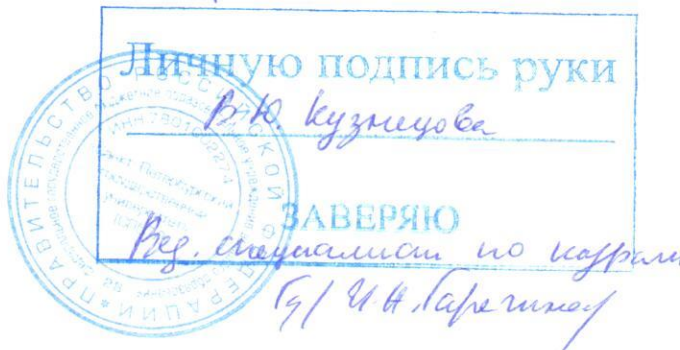 Личную подпись руки
В.Ю. Кузнецова
ЗАВЕРЯЮ
Вед. специалист по кадрам
И.Н.
ПРАВИТЕЛЬСТВО РОССИЙСКОЙ ФЕДЕРАЦИИ
ИНН 7801002274
Санкт-Петербургский
государственный
университет